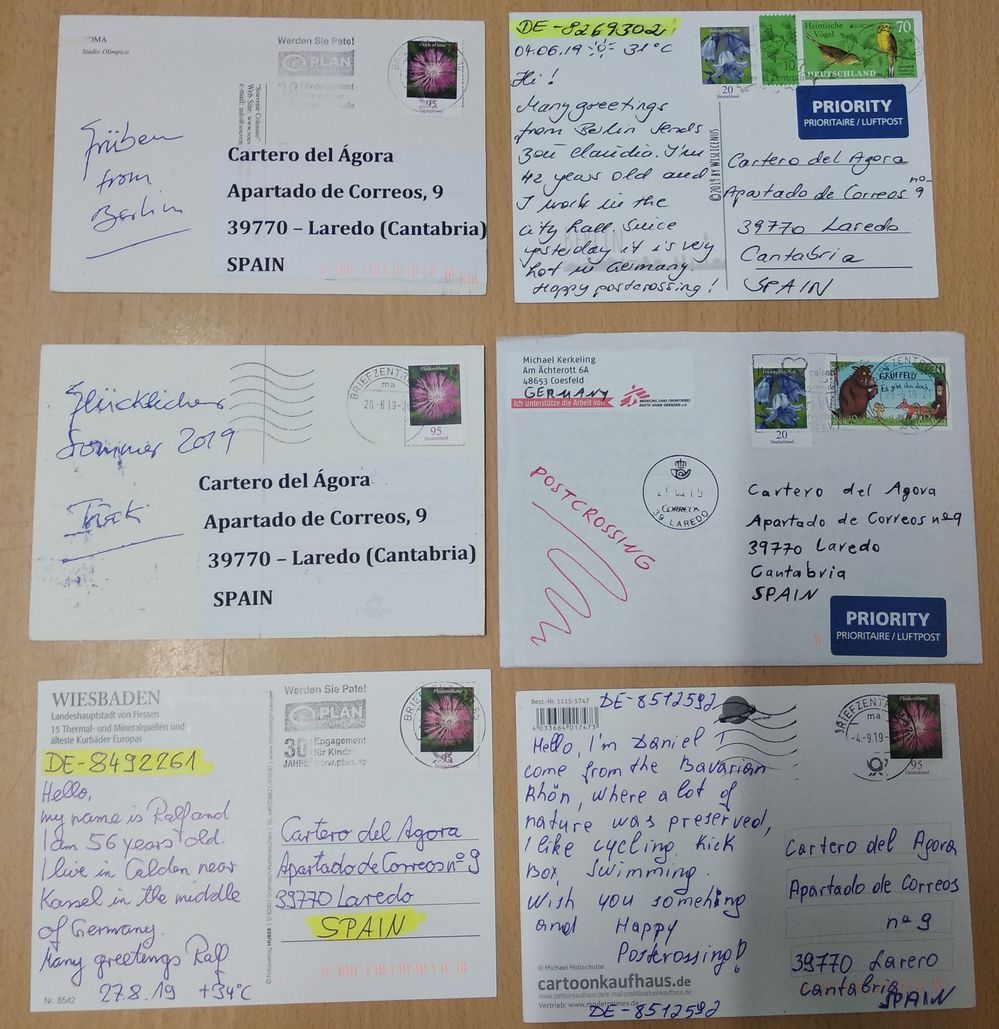 ROMA
Studio Olimpico
Werden Sie Pate!
PLAN
Flockenblume
95
Deutschland
Grüße
from
Berlin
Cartero del Ágora
Apartado de Correos, 9
39770 – Laredo (Cantabria)
SPAIN
DE-8269302
04.06.19 31°C
Hi!
Many greetings
from Berlin sends
you Claudio. I'm
42 years old and
I work in the
city hall. Since
yesterday it is very
hot in Germany.
Happy postcrossing!
20
Deutschland
Heimische
Vögel
70
DEUTSCHLAND
PRIORITY
PRIORITAIRE / LUFTPOST
Cartero del Agora
Apartado de Correos nº 9
39770 Laredo
Cantabria
SPAIN
Glücklicher
Sommer 2019
BRIEFZENTR
ma
Flockenblume
95
Deutschland
Cartero del Ágora
Apartado de Correos, 9
39770 – Laredo (Cantabria)
SPAIN
Michael Kerkeling
Am Ächterott 6A
48653 Coesfeld
GERMANY
Ich unterstütze die Arbeit von
MEDECINS SANS FRONTIERES
ÄRZTE OHNE GRENZEN e.V.
POSTCROSSING
CORREOS
39 LAREDO
20
Deutschland
GRÜFFELO
70
Cartero del Agora
Apartado de Correos nº9
39770 Laredo
Cantabria
SPAIN
PRIORITY
PRIORITAIRE / LUFTPOST
WIESBADEN
Landeshauptstadt von Hessen
15 Thermal- und Mineralquellen und
älteste Kurbäder Europas
DE-8492261
Hello,
my name is Ralf and
I am 56 years old.
I live in Calden near
Kassel in the middle
of Germany.
Many greetings Ralf
27.8.19 +34°C
Nr. 8542
Werden Sie Pate!
PLAN
30 Engagement
für Kinder
JAHRE www.plan.de
Flockenblume
95
Cartero del Agora
Apartado de Correos nº 9
39770 Laredo
SPAIN
Best.-Nr. 1115-1747
DE-8512592
4 033684 017473
Hello, I'm Daniel I
come from the Bavarian
Rhön, where a lot of
nature was preserved,
I like cycling, Kick
Box, Swimming.
Wish you somehing
and Happy
Postcrossing!
© Michael Holtschulte
cartoonkaufhaus.de
DE-8512592
BRIEFZENTR
ma
-4.-9.19-
Flockenblume
95
Deutschland
Cartero del Agora
Apartado de Correos
nº 9
39770 Larero
Cantabria
SPAIN